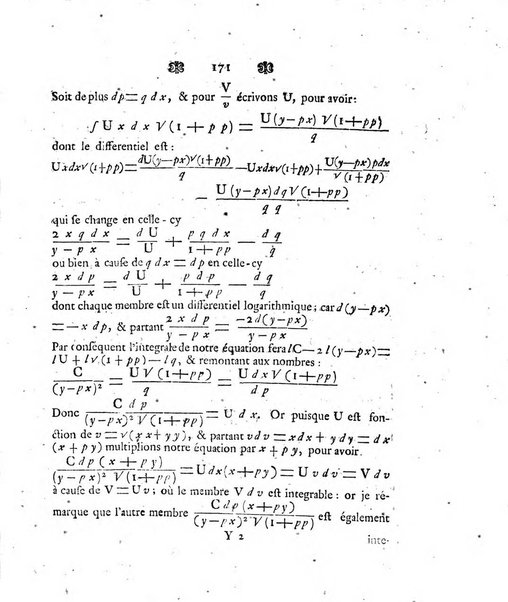 171
Soit de plus dp = q dx, & pour V/v écrivons U, pour avoir:
∫ U x d x √(1 + p p) = U(y−px) √(1+pp) / q
dont le differentiel est :
Uxdx√(1+pp) = dU(y−px)√(1+pp) / q − Uxdx√(1+pp) + U(y−px)pdx / √(1+pp)
− U (y−px) dq √(1+pp) / q q
qui se change en celle-cy
2 x q d x / y − p x = d U / U + p q d x / 1 + pp − d q / q
ou bien à cause de q d x = d p en celle-cy
2 x d p / y − p x = d U / U + p d p / 1 + pp − d q / q
dont chaque membre est un differentiel logarithmique ; car d (y − px)
= − x dp, & partant 2 x d p / y − p x = −2 d(y−px) / y − p x
Par conséquent l'integrale de notre équation sera lC − 2 l (y − px) =
lU + l√(1 + pp) − lq, & remontant aux nombres :
C / (y−px)² = U √(1+pp) / q = U d x √(1+pp) / d p
Donc C d p / (y−px)² √(1+pp) = U d x. Or puisque U est fon-
ction de v = √(x x + y y), & partant v d v = x d x + y d y = d x
(x + p y) multiplions notre équation par x + p y, pour avoir.
C d p (x + p y) / (y−px)² √(1+pp) = U d x (x + p y) = U v d v = V d v
à cause de V = U v ; où le membre V d v est integrable : or je re-
marque que l'autre membre C d p (x+py) / (y−px)² √(1+pp) est également
Y 2
inte-